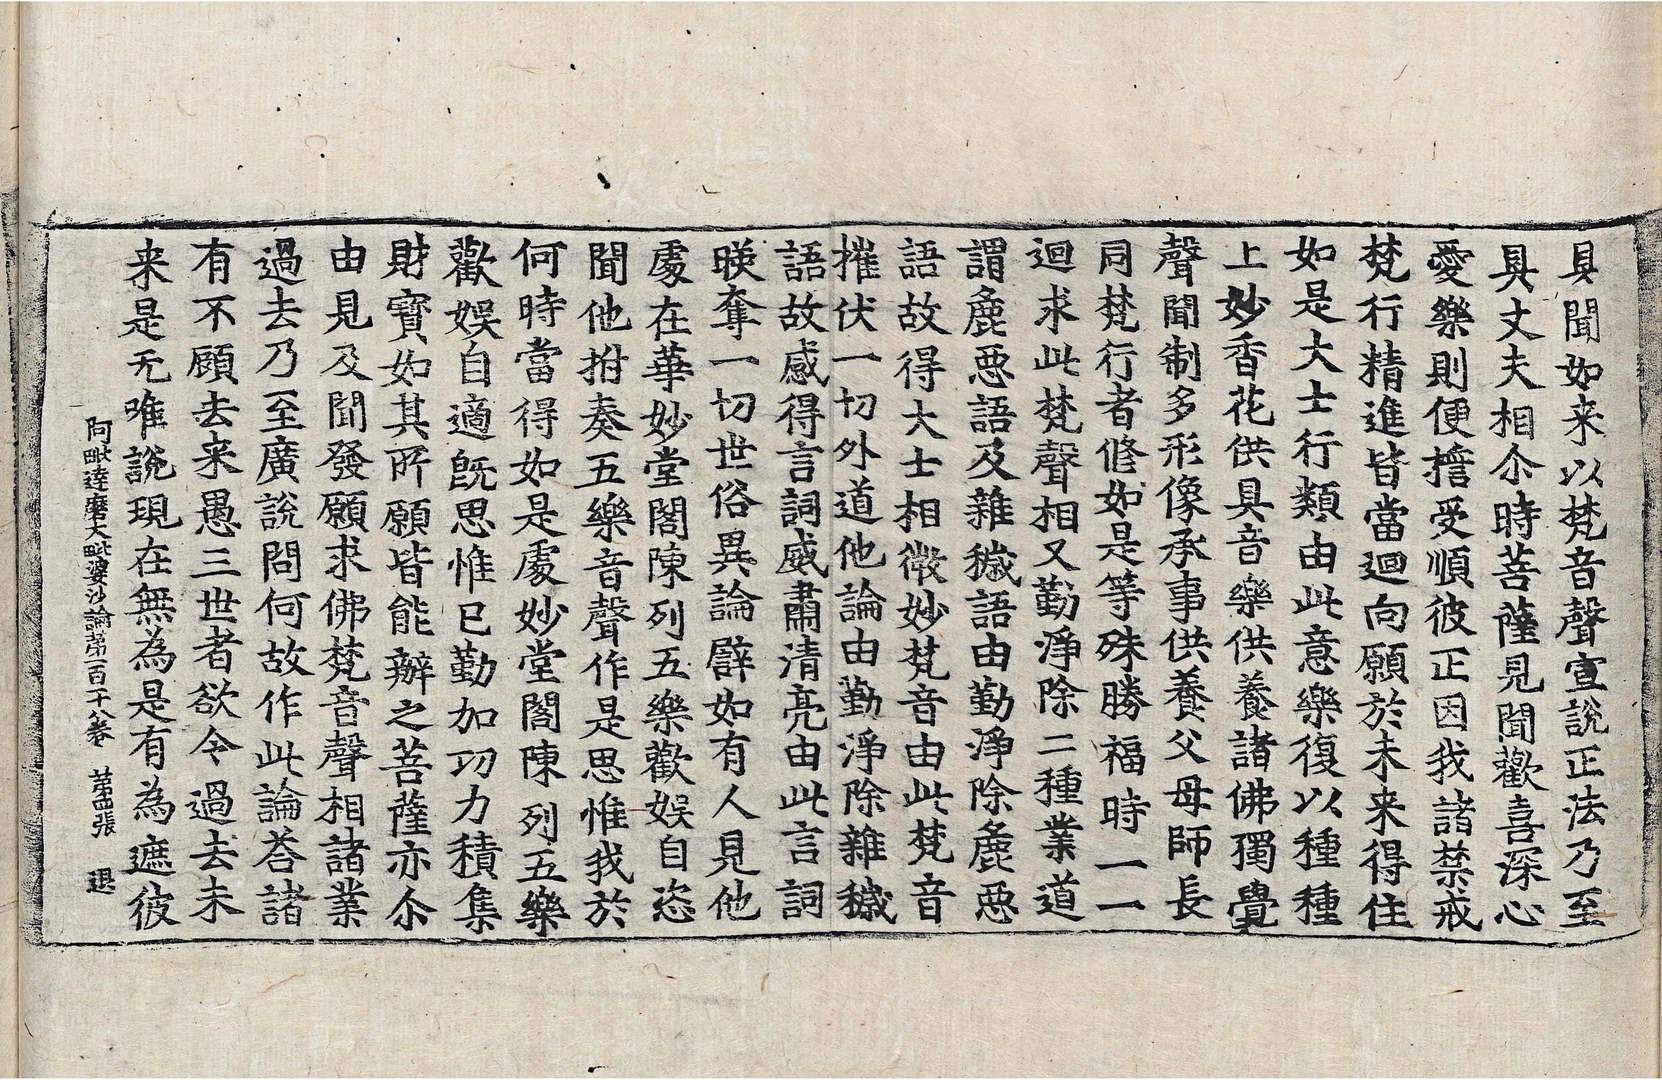 具聞如来以梵音聲宣說正法乃至
具丈夫相尒時菩薩見聞歡喜深心
愛樂則便擔受順彼正因我諸禁戒
梵行精進皆當迴向願於未来得住
如是大士行類由此意樂復以種種
上妙香花供具音樂供養諸佛獨覺
聲聞制多形像承事供養父母師長
同梵行者修如是等殊勝福時一一
迴求此梵聲相又勤淨除二種業道
謂麁惡語及雜穢語由勤淨除麁惡
語故得大士相微妙梵音由此梵音
摧伏一切外道他論由勤淨除雜穢
語故感得言詞威肅清亮由此言詞
暎奪一切世俗異論譬如有人見他
處在華妙堂閣陳列五樂歡娛自恣
聞他拊奏五樂音聲作是思惟我於
何時當得如是處妙堂閣陳列五樂
歡娛自適旣思惟已勤加功力積集
財寶如其所願皆能辦之菩薩亦尒
由見及聞發願求佛梵音聲相諸業
過去乃至廣說問何故作此論荅諸
有不願去来愚三世者欲令過去未
来是无唯說現在無為是有為遮彼
阿毗達磨大毗婆沙論第一百十八卷 第四張 退